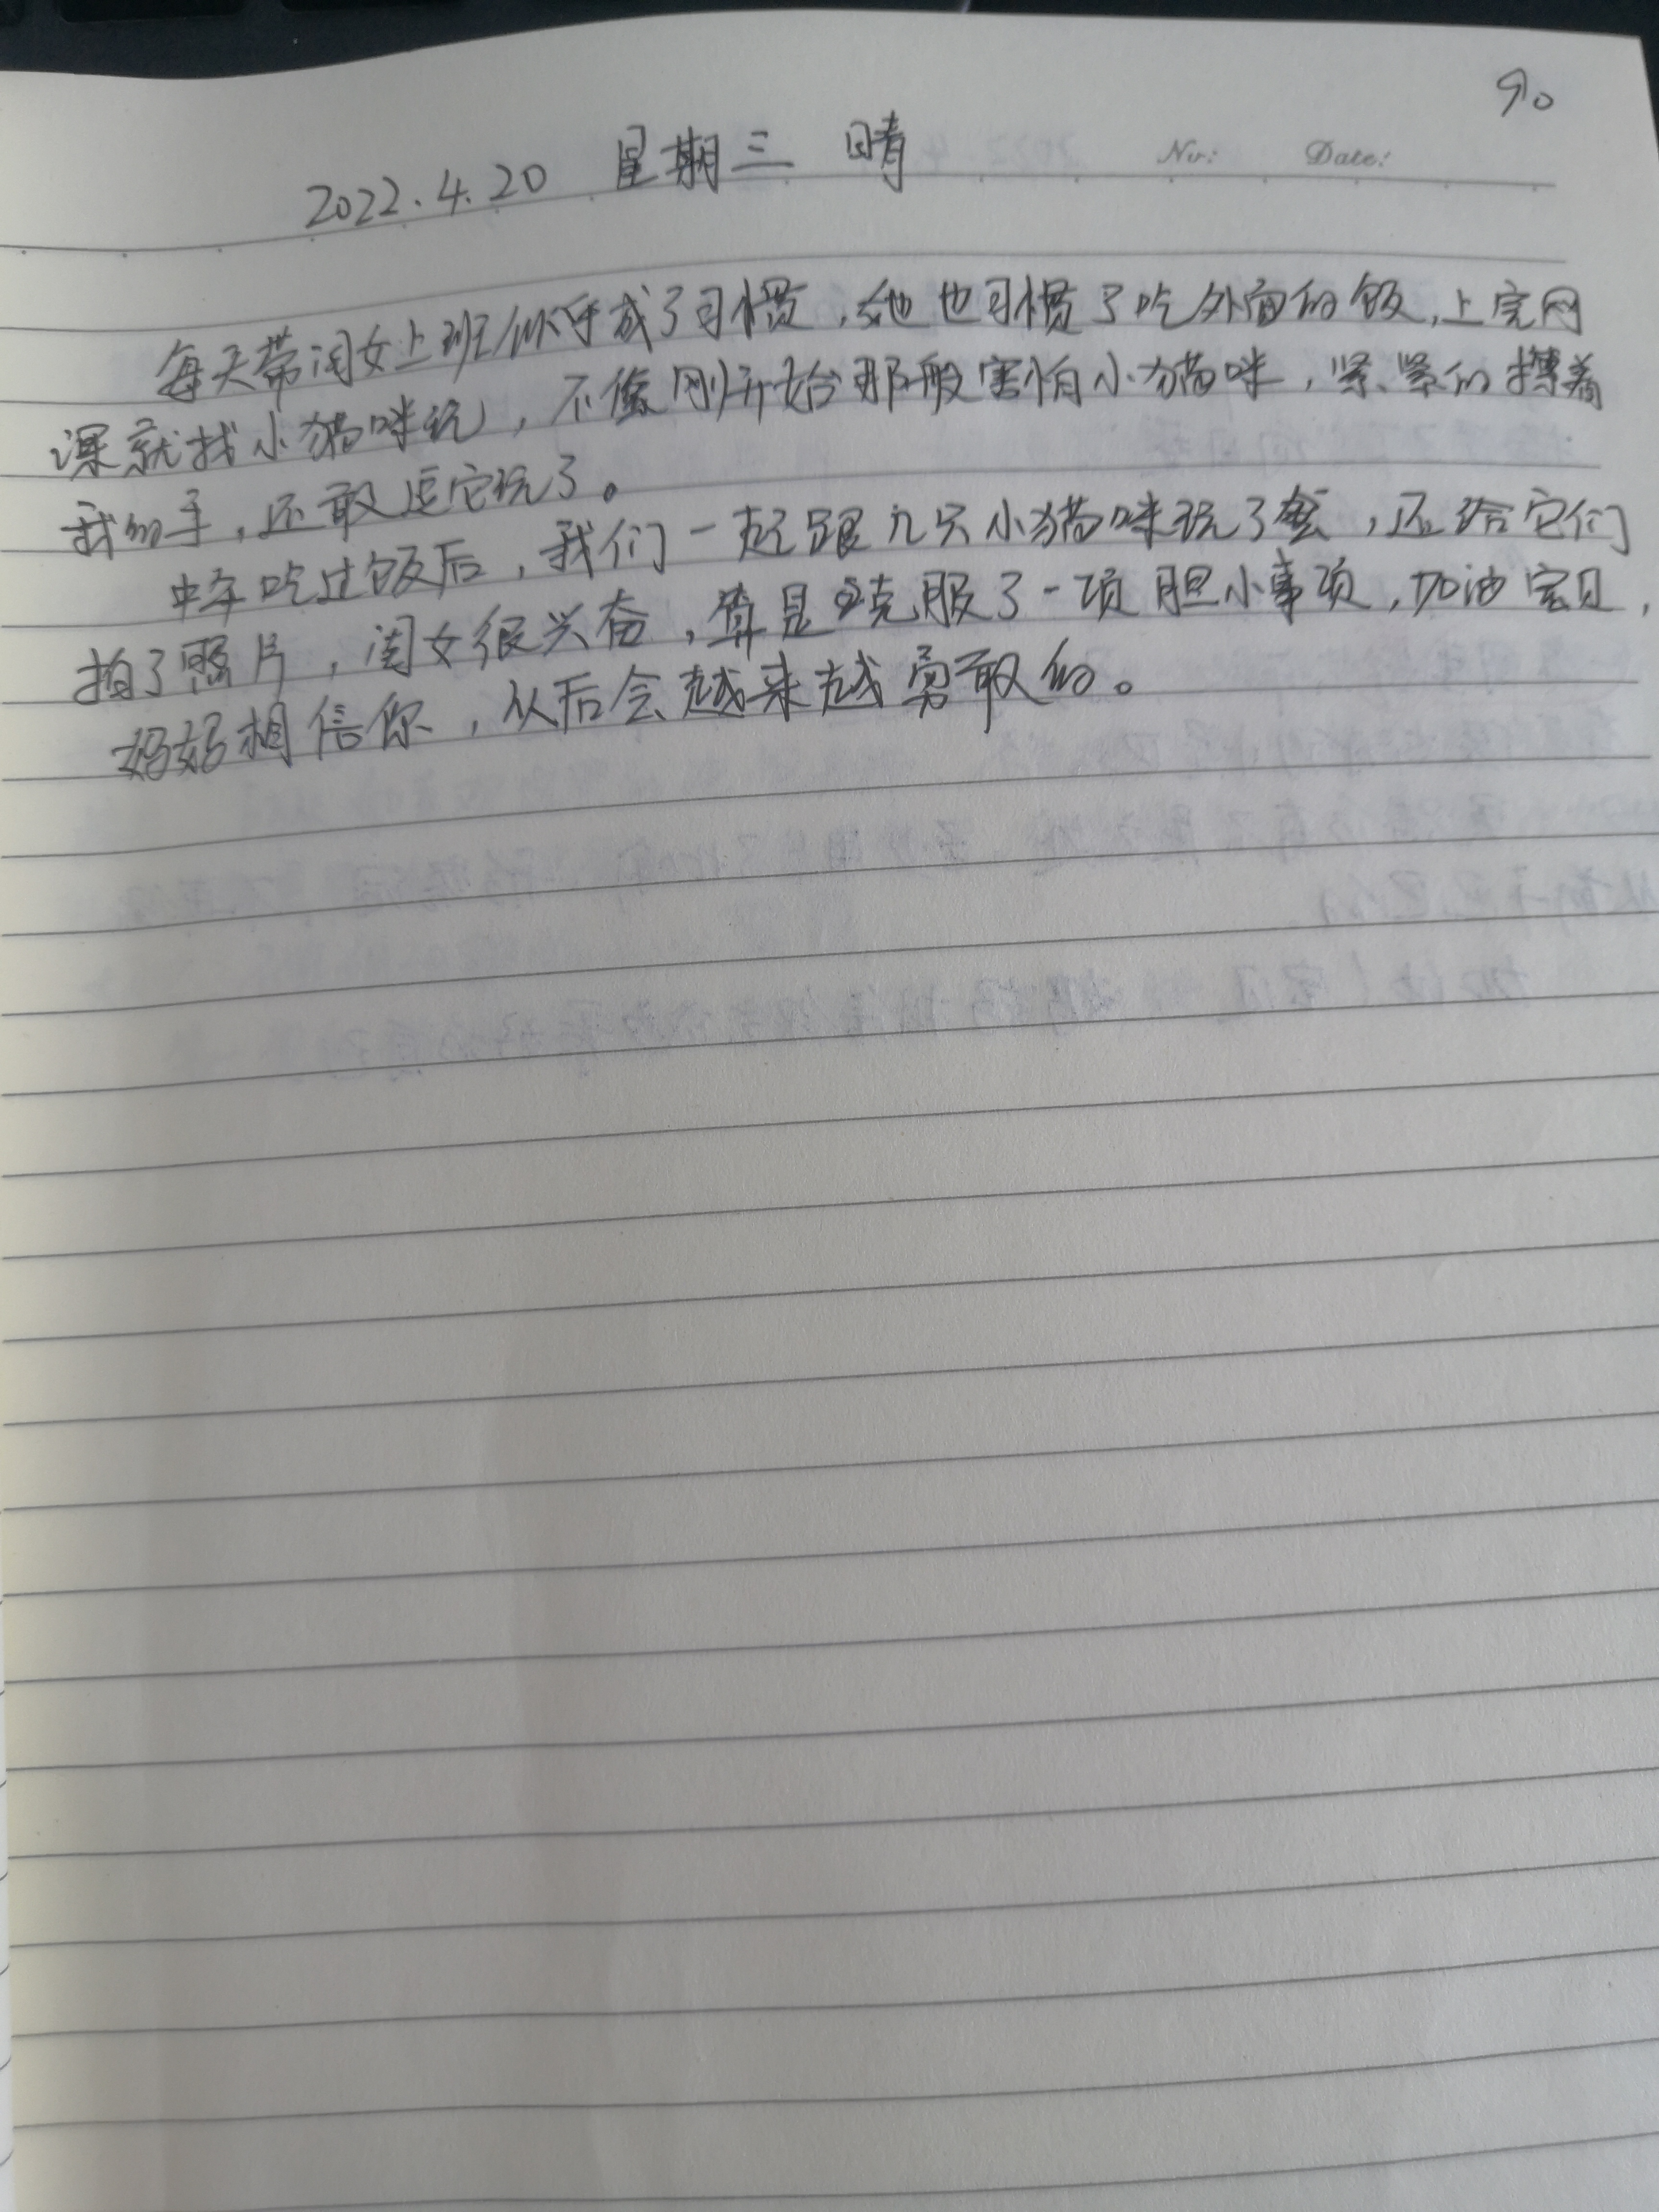 90
2022.4.20 星期三 晴
No: Date:
每天带闺女上班似乎成了习惯，她也习惯了吃外面的饭，上完网
课就找小猫咪玩，不像刚开始那般害怕小猫咪，紧紧的攥着
我的手，还敢逗它玩了。
中午吃过饭后，我们一起跟几只小猫咪玩了会，还给它们
拍了照片，闺女很兴奋，算是克服了一项胆小事项，加油宝贝，
妈妈相信你，从后会越来越勇敢的。